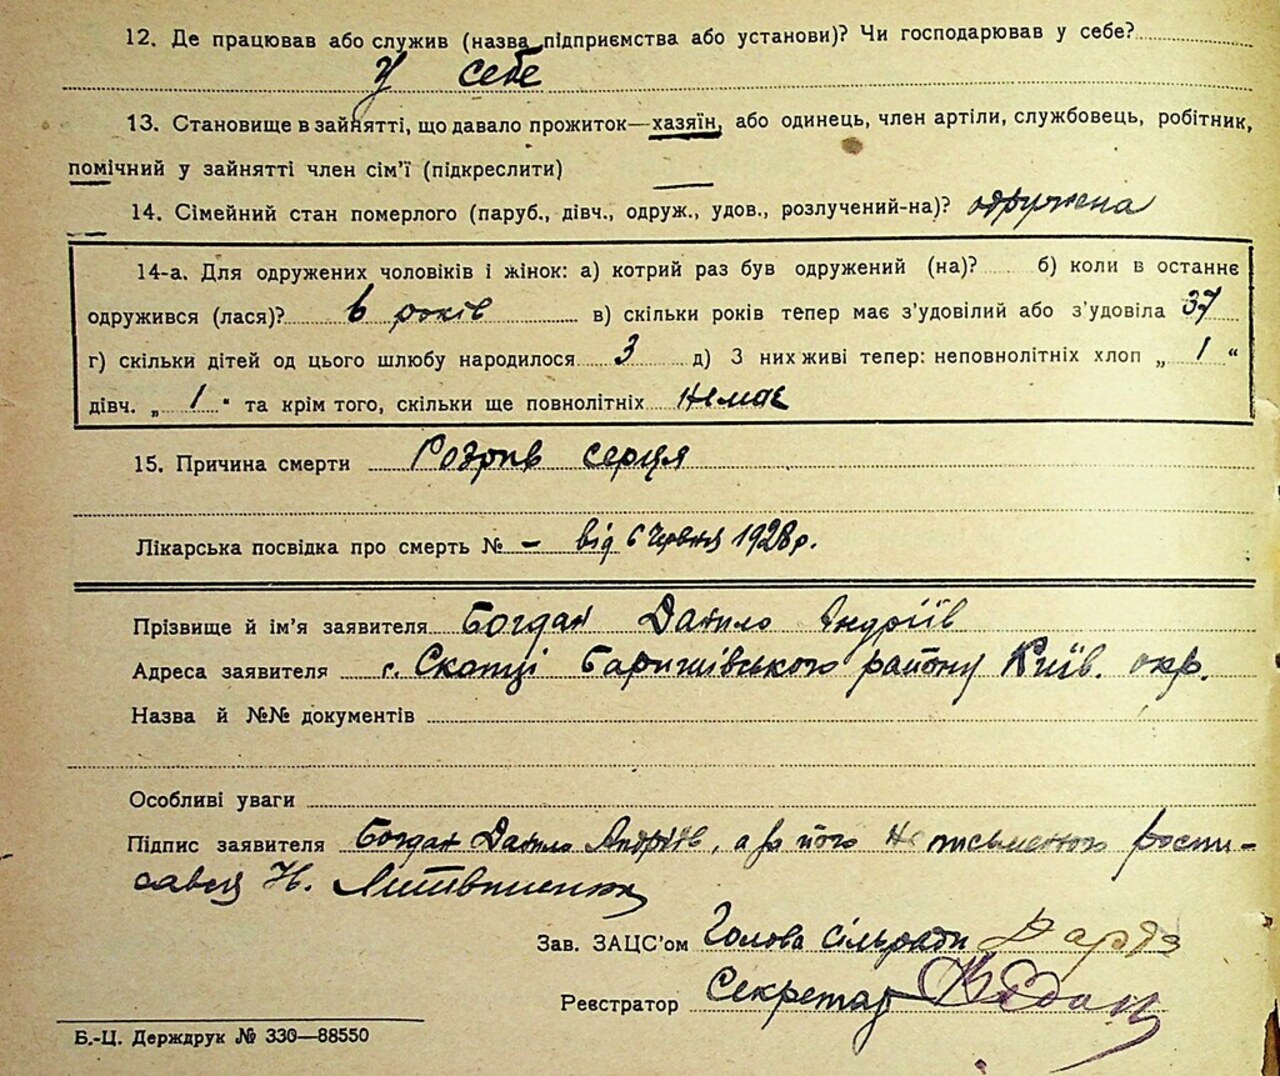 12. Де працював або служив (назва підприємства або установи)? Чи господарював у себе?
У себе
13. Становище в зайнятті, що давало прожиток—хазяїн, або одинець, член артілі, службовець, робітник,
помічний у зайнятті член сім'ї (підкреслити)
14. Сімейний стан померлого (паруб., дівч., одруж., удов., розлучений-на)? одружена
14-а. Для одружених чоловіків і жінок: а) котрий раз був одружений (на)? б) коли в останнє
одружився (лася)? 6 років в) скільки років тепер має з'удовілий або з'удовіла 37
г) скільки дітей од цього шлюбу народилося 3 д) З них живі тепер: неповнолітніх хлоп „ 1 “
дівч. „ 1 “ та крім того, скільки ще повнолітніх немає
15. Причина смерти Розрив серця
Лікарська посвідка про смерть № – від 6 червня 1928 р.
Прізвище й ім'я заявителя Богдан Данило Андріїв
Адреса заявителя с. Скопці Баришівського району Київ. окр.
Назва й №№ документів
Особливі уваги
Підпис заявителя Богдан Данило Андріїв, а за його не письменого роспи-
сався Н. Литвиненко
Зав. ЗАЦС'ом Голова сільради
Реєстратор Секретар
Б.-Ц. Держдрук № 330—88550